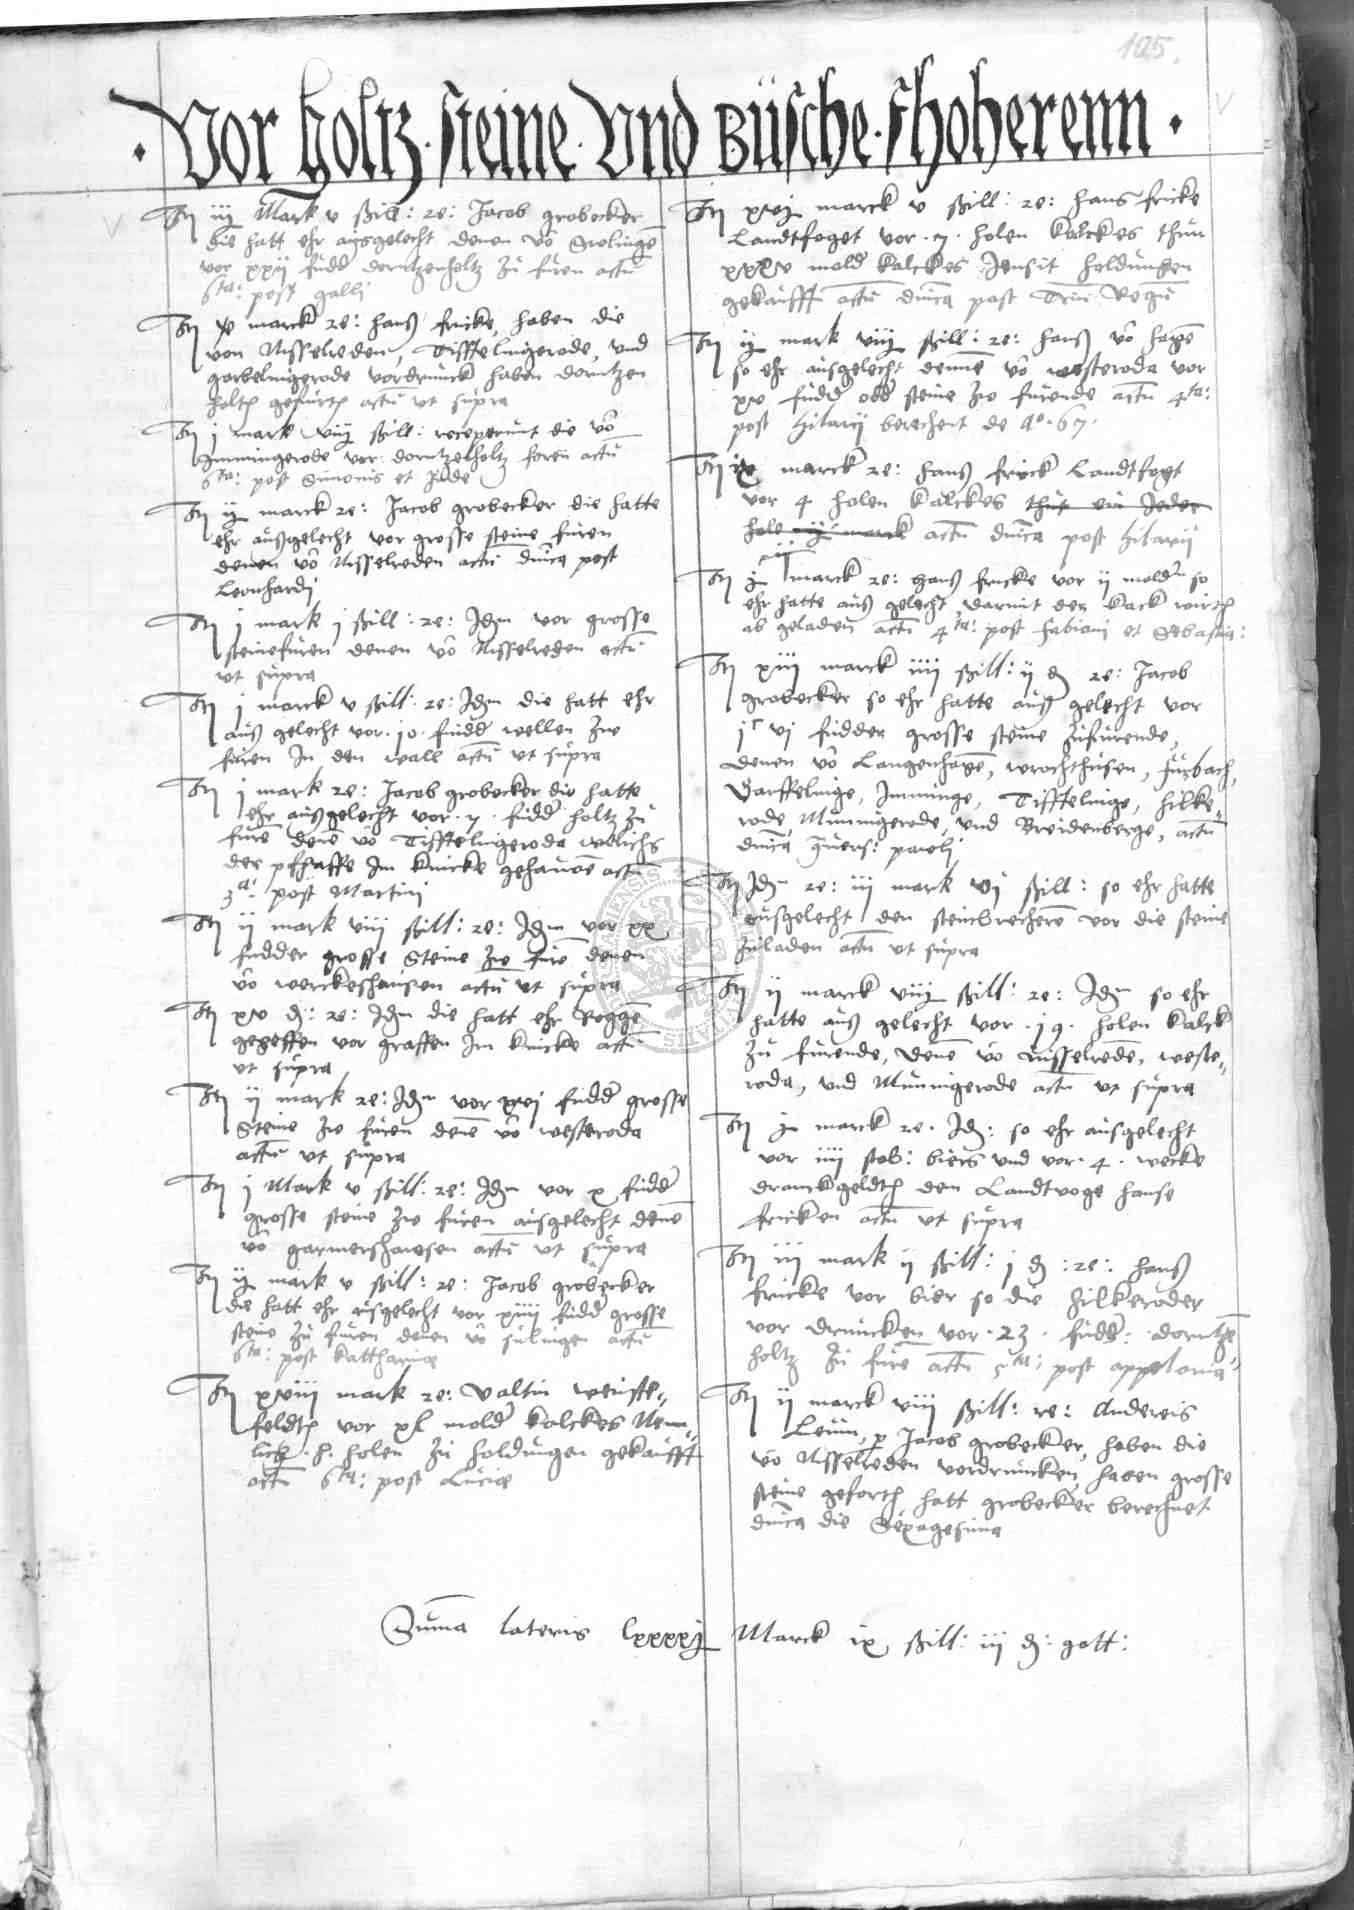 105.
Vor holtz · steine · Vnd Büsche · fhoherenn ·
Itm iij Mark v ßill: re: Jacob grobecker
die hatt ehr ausgelecht denen vô Seolingē
vor xxij fudd dorntzenholtz zu furen actū
6ta: post galli
Itm marck re: hanß fricke, haben die
von Nisselreden, Tifftelingerode, vnd
gerbelingerode vordrunck haben dorntzen
holtz gefurtt actū vt supra
Itm j mark viij ßill: receperunt die vô
Immingerode vor dorntzelholtz foren actū
6ta: post Simonis et Jude
Itm ij marck re: Jacob grobecker die hatte
ehr außgelecht vor grosse steine furen
denen vô Nisselreden actū dnīca post
Leonhardi
Itm j mark j ßill: re: Idm vor grosse
steinefuren denen vô Nisselreden actū
vt supra
Itm j marck v ßill: re: Idm die hatt ehr
auß gelecht vor · 10 · fudd wellen zw
furen In den wall actū vt supra
Itm j mark re: Jacob grobecker die hatte
ehr außgelecht vor · 7 · fudd holtz zu
furē denē vô Tifftelingeroda welichs
der pfhaffe Im knicke gehauwē actū
3a: post Martini
Itm ij mark viij ßill: re: Idm vor xx
fudder grosse Steine zw furē denen
vô werckeshausen actū vt supra
Itm xv d: re: Idm die hatt ehr Roggē
gegeffen vor graffen Im knicke actū
vt supra
Itm ij mark re: Idm vor xvj fudd grosse
Steine zw furen denē vô westeroda
actū vt supra
Itm j Mark v ßill: re: Idm vor x fudd
grosse steine zw furen ausgelecht denē
vô garmershawsen actū vt supra
Itm ij mark v ßill: re: Jacob grobecker
die hatt ehr ausgelecht vor xiiij fudd grosse
steine zu furen denen vô sulingen actū
6ta: post Kattharine
Itm xviij mark re: Valtin weinste„
feldtt vor xl mold kalckes Nem„
lich · holen zu holdungen gekaufft
actū 6ta: post Lucie
Itm xvj marck v ßill: re: hans fricke
Landtfoget vor · 7 · holen kalckes thun
xxxv mold kalckes Jensit holdungen
gekaufft actū dnīca post Trium Regū
Itm ij mark viij ßill: re: hanß vô hagē
so ehr ausgelecht dennē vô westeroda vor
xv fudd odd steine zw furende actū 4ta:
post hilarij berechent de Ao · 67 ·
Itm ix marck re: hanß frick Landtfogt
vor 4 holen kalckes thut ein Jeder
hole iij marck actū dnīca post hilarij
Itm ij marck re: hanß fricke vor ij mold so
ehr hatte auß gelecht darmit der kack wirtt
ab geladen actū 4ta: post fabiani et Sebastia:
Itm xiij marck iiij ßill: ij d re: Jacob
grobecker so ehr hatte auß gelecht vor
jc vj fudder grosse steine zufurende,
denen vô Langenhagē, wrochthusen, furbach,
Darffelnige, Imminge, Tifftelnige, hilke„
rode, Minnigerode, vnd Breidenberge, actū
dnīca 9uers: pawli
Itm Idm re: iij mark vj ßill: so ehr hatte
ausgelecht den steinbrecherē vor die steine
zuladen actū vt supra
Itm ij marck viij ßill: re: Idm so ehr
hatte auß gelecht vor · 19 · holen kalck
zu furende, denē vô nisselredē, weste„
roda, vnd Minnigerode actū vt supra
Itm marck re · Id: so ehr ausgelecht
vor iiij stob: biers vnd vor · 4 · wecke
dranckgeldtt dem Landtvoge hanse
fricken actū vt supra
Itm iij mark ij ßill: j d :re: hanß
fricke vor bier so die hilkeroder
vor druncken vor · 23 · fudd: dorntzē
holtz zu furē actū 5ta: post appolonia„
Itm ij marck viij ßill: re: Andereis
Leün, p Jacob grobecker, haben die
vô Nisselreden vordruncken, haben grosse
steine gefortt hatt grobecker berechnet
dnīca die Sexagesima
Sum̄a lateris lxxxxj Marck ix ßill: iij d: gott: